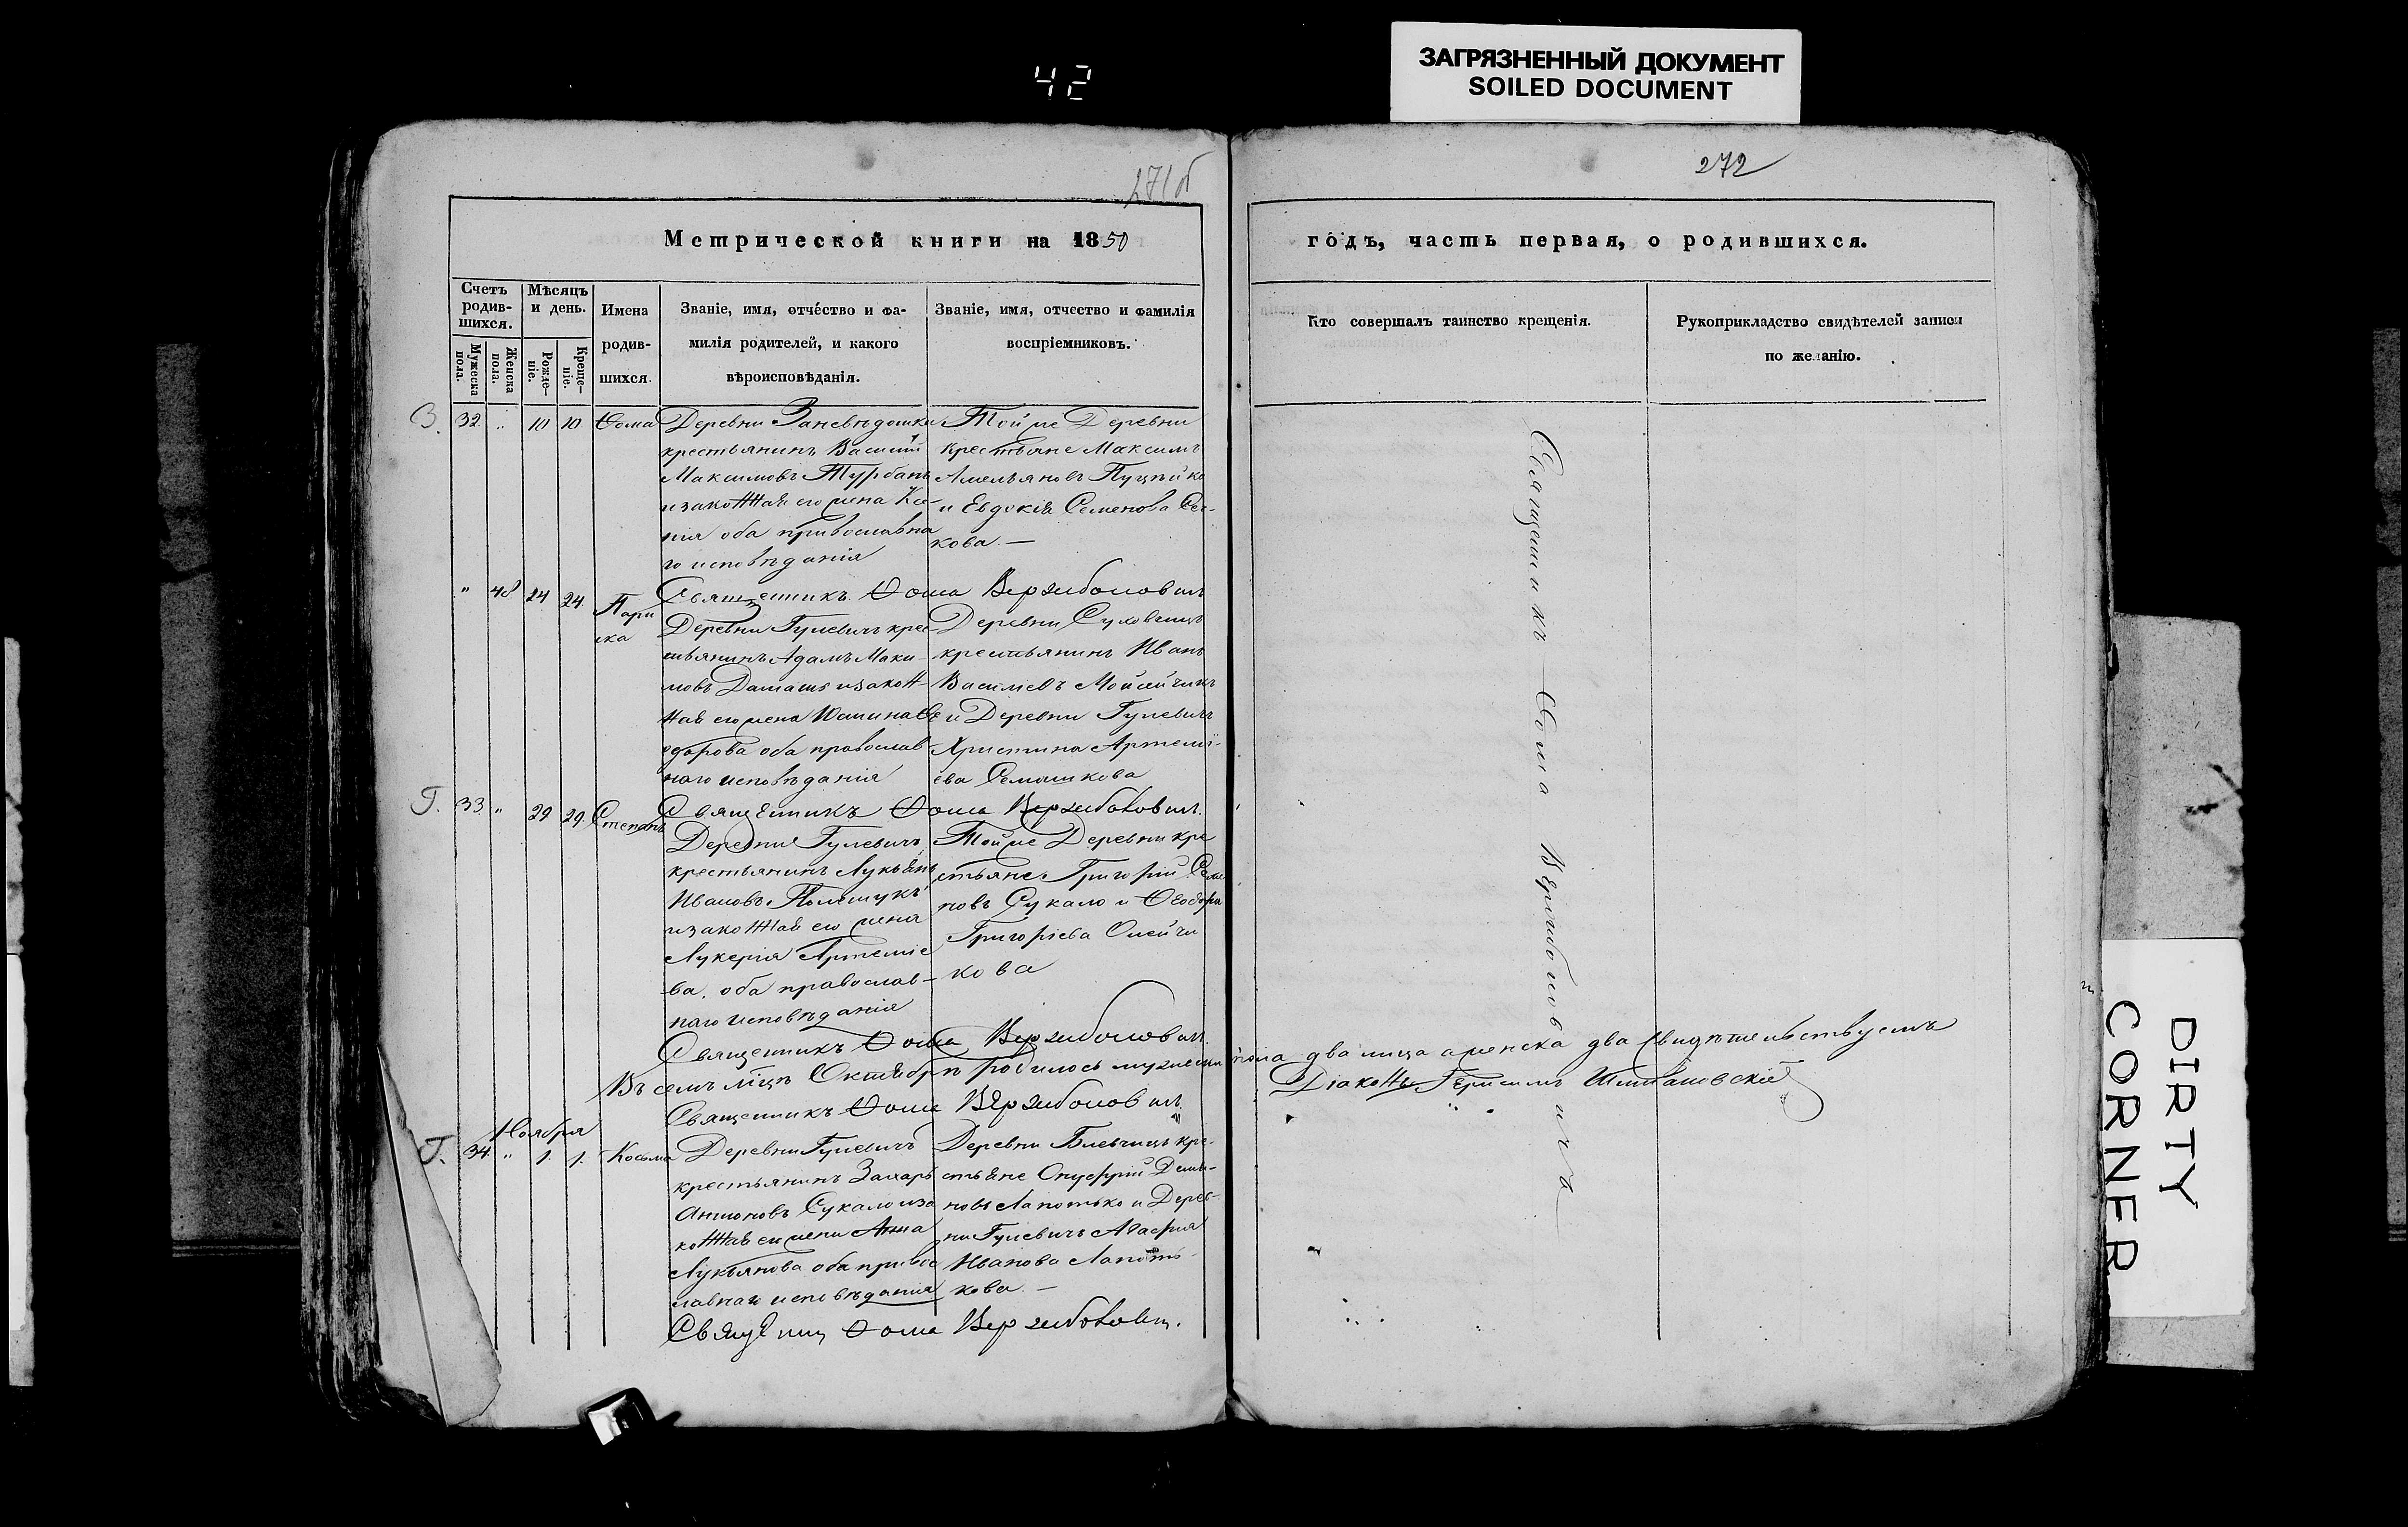 42
ЗАГРЯЗНЕННЫЙ ДОКУМЕНТ
SOILED DOCUMENT
271б
272
Метрической книги на 1850
годъ, часть первая, о родившихся.
Счетъ родив-шихся.
Мужеска пола.
Женска пола.
Мѣсяцъ и день.
Рожде-ніе.
Креще-ніе.
Имена родив-шихся.
Званіе, имя, отчество и фа-
милія родителей, и какого
вѣроисповѣданія.
Званіе, имя, отчество и фамилія
воспріемниковъ.
Кто совершалъ таинство крещенія.
Рукоприкладство свидѣтелей записи
по желанію.
З. 32 " 10 10 Ѳома
Деревни
крестьянинъ Василій
Максимовъ Турбанъ
изаконная его жена Ксе-
нія оба православна
го исповѣданія
Тойже Деревни
крестьяне Максимъ
Амельяновъ
и Евдокія Семенова
кова. —
Священникъ Ѳома Вержболовичъ
" 48 24 24 Пари
ска
Деревни Гулевичъ крес-
тьянинъ Адамъ
новъ изакон-
ная его жена Юстина Ѳе
одорова оба православ
наго исповѣданія
Деревни
крестьянинъ Иванъ
Василіевъ
и Деревни Гулевичъ
Христина Артемі-
ева Семашкова
Священникъ Ѳома Вержболовичъ.
Г. 33 " 29 29. Степанъ
Деревни Гулевичъ
крестьянинъ Лукьянъ
Ивановъ Полещукъ
изаконная его жена
Лукерія Артеміе
ва, оба православ-
наго исповѣданія
Тойже Деревни кре
стьяне Григорій Семе
новъ Сукало и Ѳеодора
Григоріева Олейчи
кова
Священникъ Ѳома Вержболовичъ.
Въ семъ мѣцѣ Октябрѣ родилось мужеска пола два лица а женска два свидѣтельствуемъ
Священникъ Ѳома Вержболовичъ.
Діаконъ
Ноября
Г. 34 " 1. 1. Косьма
Деревни Гулевичъ
крестьянинъ Захарь
Антоновъ Сукало иза
конная его жена Анна
Лукьянова оба правос
лавнаго исповѣданія
Деревни кре-
стьяне Онуфрій Деми-
новъ Лапотько и Дерев-
ни Гулевичъ Агафія
Иванова Лапоть-
кова. —
Священник Ѳома Вержболович.
Священникъ Ѳома Вержболовичъ
DIRTY
CORNER